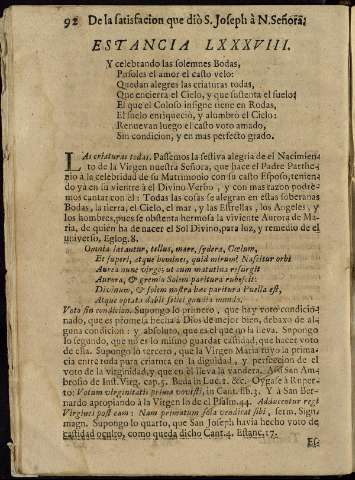 92 De la satisfacion que diò S. Joseph à N. Señora;
ESTANCIA LXXXVIII.
Y celebrando las solemnes Bodas,
Pusoles el amor el casto velo:
Quedan alegres las criaturas todas,
Que encierra el Cielo, y que sustenta el suelo;
El que el Coloso insigne tiene en Rodas,
El suelo enriqueciò, y alumbrò el Cielo:
Renuevan luego el casto voto amado,
Sin condicion, y en mas perfecto grado.
LAs criaturas todas. Passemos la festiva alegria de el Nacimien-
to de la Virgen nuestra Señora, que hace el Padre Patrhe-
nio à la celebridad de su Matrimonio con su casto Esposo, tenien-
do yà en su vientre à el Divino Verbo, y con mas razon podrè-
mos cantar con èl: Todas las cosas se alegran en estas soberanas
Bodas, la tierra, el Cielo, el mar, y las Estrellas, los Angeles, y
los hombres, pues se obstenta hermosa la viviente Aurora de Ma-
ria, de quien ha de nacer el Sol Divino, para luz, y remedio de el
universo, Eglog. 8.
Omnia lætantur, tellus, mare, sydera, Cœlum,
Et superi, atque homines, quid mirum! Nascitur orbi
Aurea nunc virgo; ut cum matutina resurgit
Aurora, & gremio Solem paritura rubescit:
Divinum, & solem nostra hæc paritura Puella est,
Atque optata dabit felix gaudia mundo.
Voto sin condicion. Supongo lo primero, que hay voto condicio-
nado, que es promesa hecha à Dios de mejor bien, debaxo de al-
guna condicion: y absoluto, que es el que no la lleva. Supongo
lo segundo, que no es lo mismo guardar castidad, que hacer voto
de ella. Supongo lo tercero, que la Virgen Maria tuvo la prima-
cia entre toda pura criatura en la dignidad, y perfeccion de el
voto de la virginidad, y que en èl lleva la vandera. Assi San Am-
brosio de Inst. Virg. cap. 5. Beda in Luc. 1. &c. Oygase à Ruper-
to: Votum virginitatis prima vovisti, in Cant. lib. 3. Y à San Ber-
nardo apropiando à la Virgen lo de el Psalm. 44. Adducentur regi
Virgines post eam: Nam primatum sola vendicat sibi, serm. Sign.
magn. Supongo lo quarto, que San Joseph havia hecho voto de
castidad oculto, como queda dicho Cant. 4. Estanc. 17.
Es-